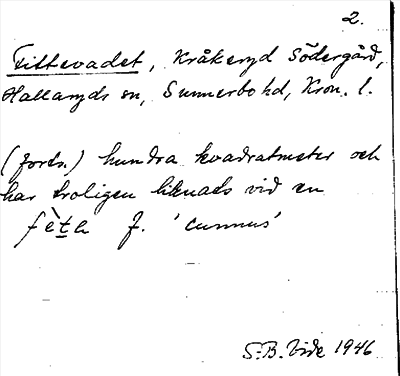 2.
Fittevadet, Kråkeryd Södergård,
Hallaryds sn, Sunnerbo hd, Kron. l.
(forts.) hundra kvadratmeter och
har troligen liknats vid en
fètа f. 'cunnus'
S.B. Vide 1946